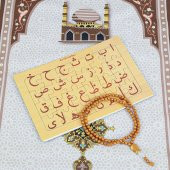 ا ب ت ث ج ح خ
د ذ ر ز س ش ص
ض ط ظ ع غ ف ق
ك ل م ن و
ه لا ى